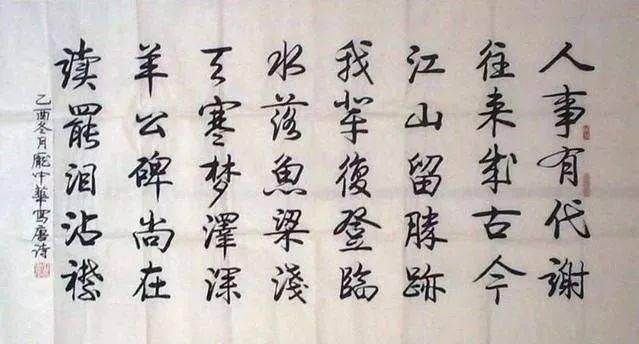 人事有代謝
往来成古今
江山留勝跡
我輩復登臨
水落魚梁淺
天寒梦澤深
羊公碑尚在
读罷泪沾襟
乙酉冬月龐中華写唐诗